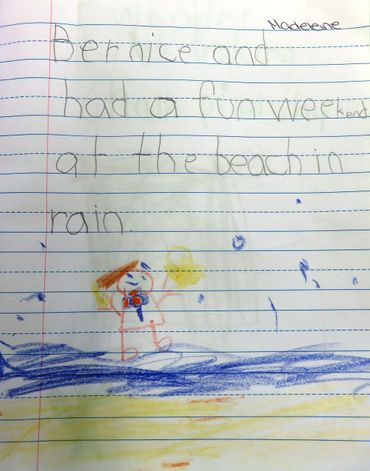 Madeleine
Bernice and
had a fun weekend
at the beach in
rain.